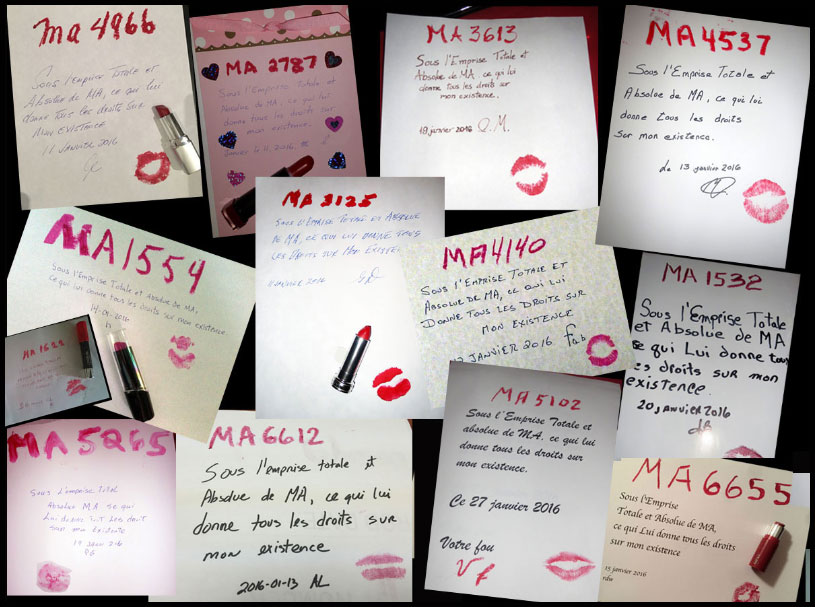 ma 4966
Sous l'Emprise Totale et
Absolue de MA, ce qui lui
donne tous les droits sur
mon existence
11 Janvier 2016
MA 2787
Sous l'Emprise Totale et
Absolue de MA, ce qui lui
donne tous les droits sur
mon existence.
Janvier le 11, 2016
MA 3613
Sous l'Emprise Totale et
Absolue de MA, ce qui lui
donne tous les droits sur
mon existence.
18 janvier 2016 Q.M.
MA 4537
Sous l'Emprise Totale et
Absolue de MA, ce qui lui
donne tous les droits
sur mon existence.
Le 13 janvier 2016
MA 1554
Sous l'Emprise Totale et Absolue de MA,
Ce qui lui donne tous les droits sur mon existence.
14-01-2016
MA 3125
Sous l'Emprise Totale et Absolue
de MA, ce qui lui donne tous
les droits sur mon existence
Janvier 2016
MA4140
Sous l'Emprise Totale et
Absolue de MA, ce qui lui
Donne tous les droits sur
mon existence
Janvier 2016
MA 1532
Sous l'Emprise Totale
et Absolue de MA
ce qui Lui donne tous
les droits sur mon
existence.
20 janvier 2016
MA 1622
MA 5265
Sous l'emprise total
Absolue MA se qui
MA6612
Sous l'emprise totale et
Absolue de MA, ce qui lui
donne tous les droits sur
mon existence
2016-01-13 AL
MA 5102
Sous l'Emprise Totale et
absolue de MA, ce qui lui
donne tous les droits sur
mon existence.
Ce 27 janvier 2016
Votre fou
MA6655
Sous l'Emprise
Totale et Absolue de MA,
ce qui Lui donne tous les droits
sur mon existence
15 janvier 2016
rdw